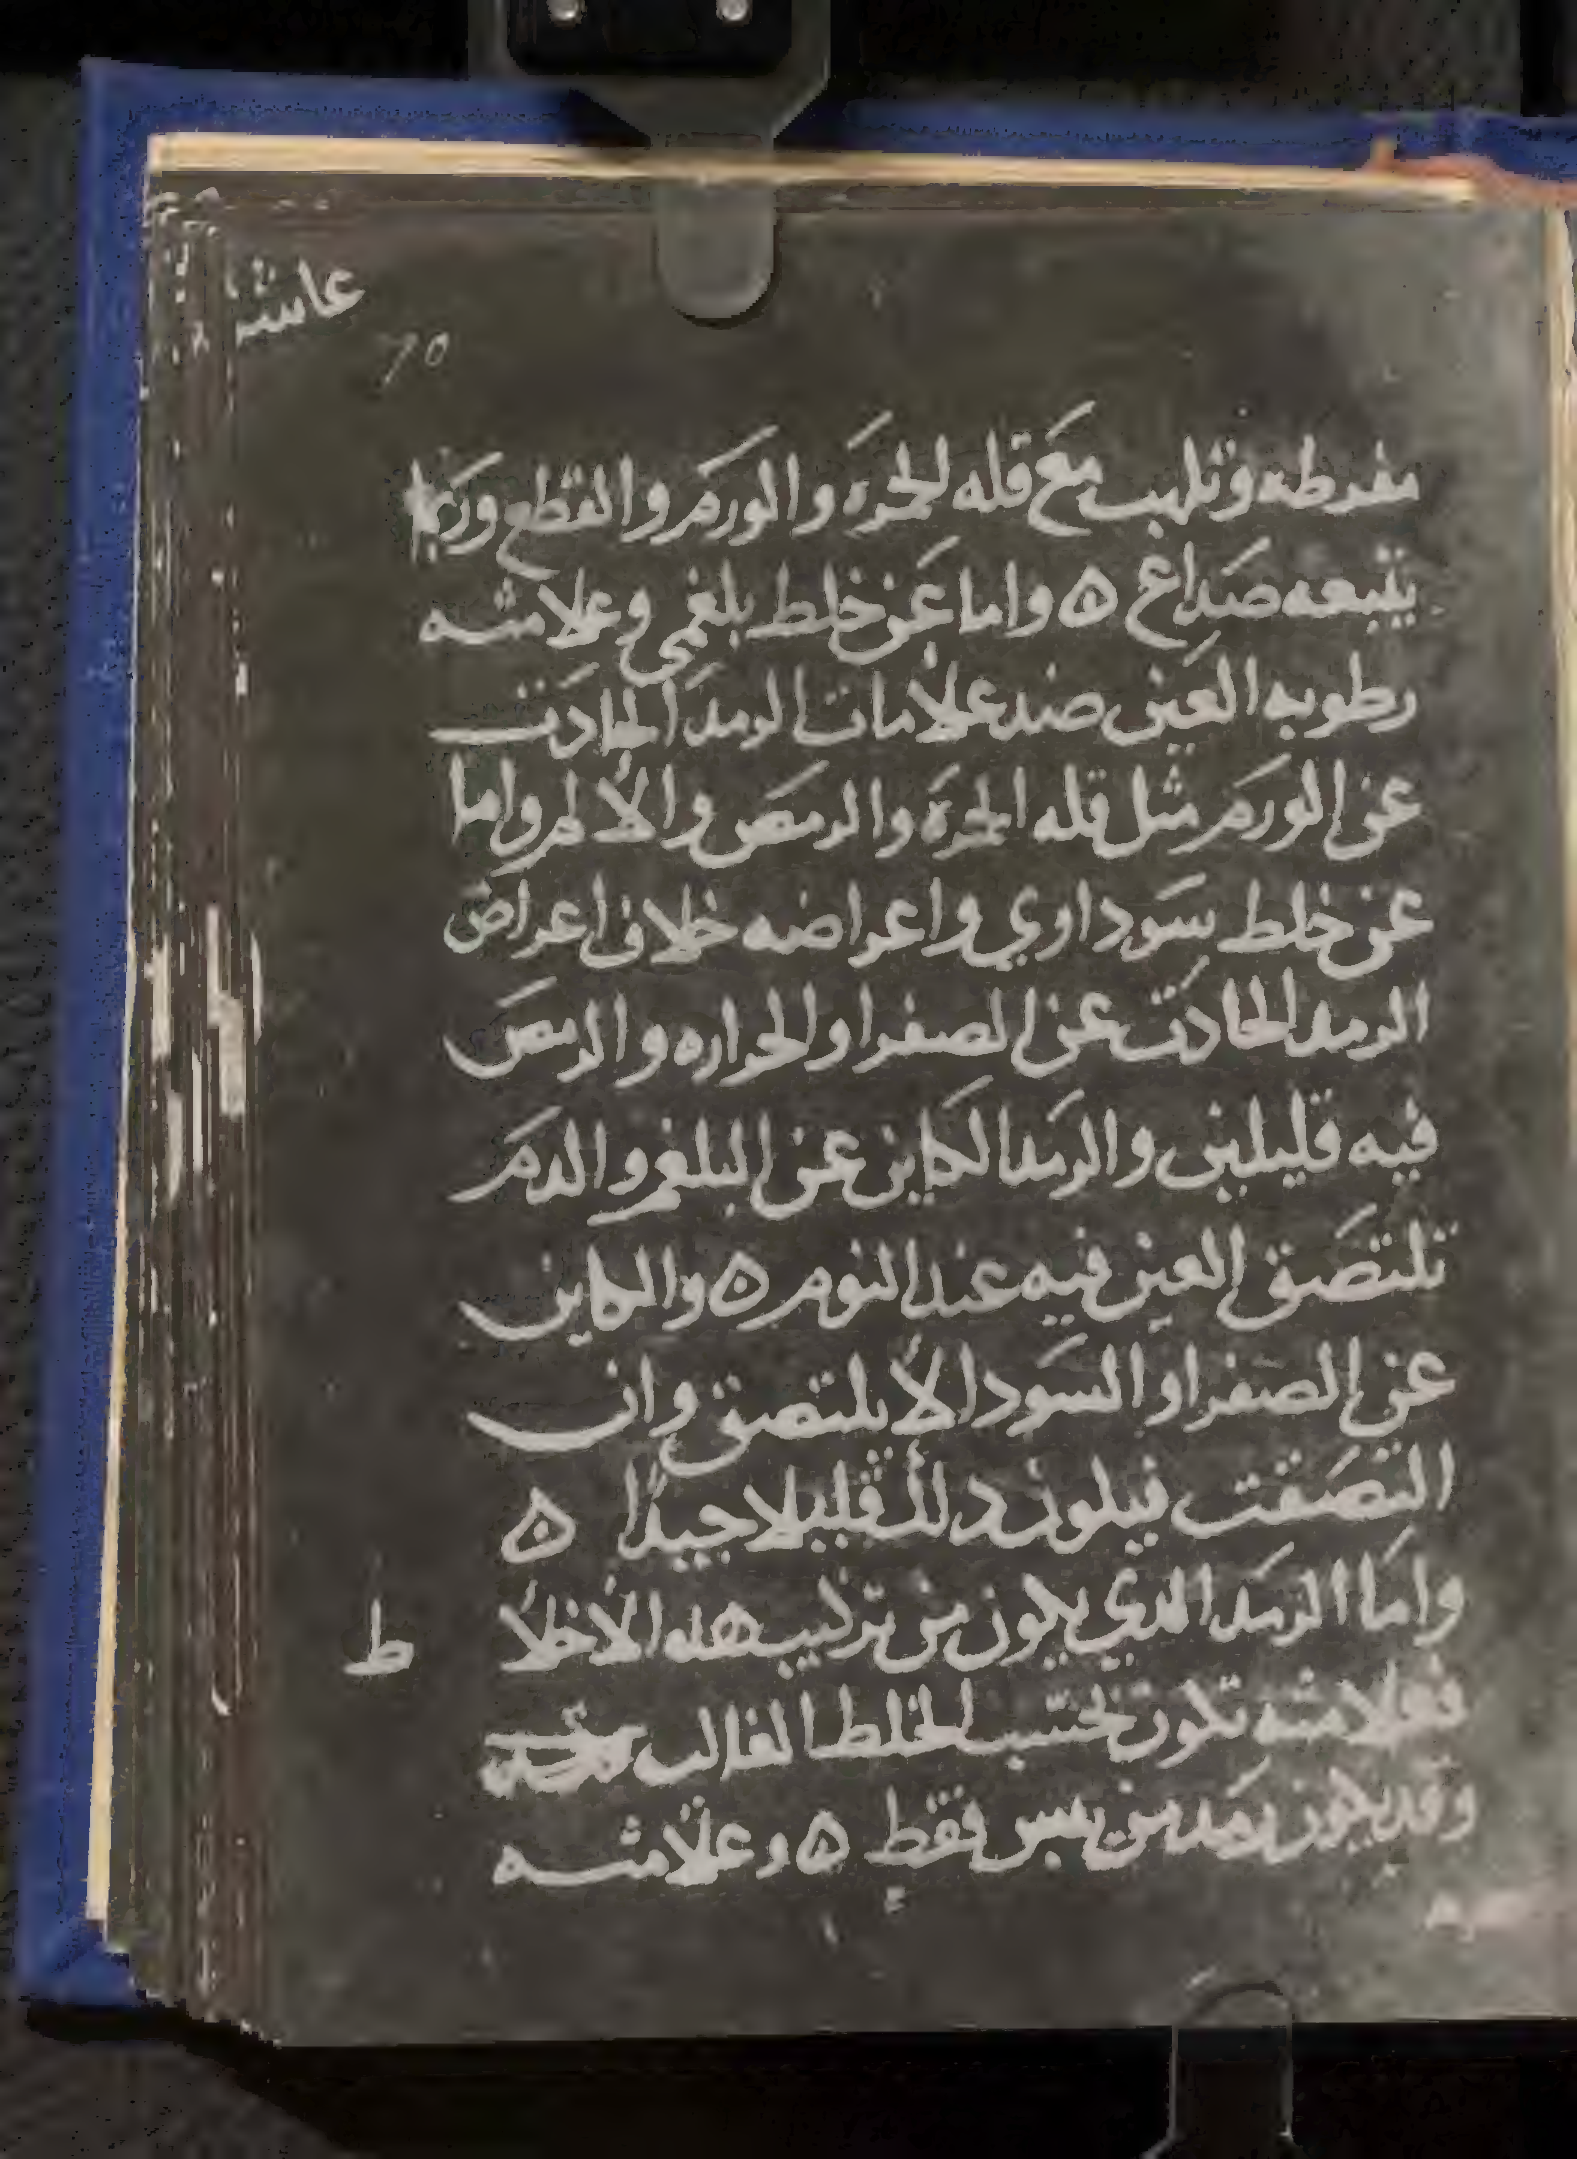 عاشر
70
مفرطه وتلهب مع قله الحمرة والورم والقطع وربما
يتبعه صداع ه واما عن خلط بلغمي وعلامته
رطوبه العين ضد علامات الرمد الحادت
عن الورم مثل قله الحمرة والرمص والالم واما
عن خلط سوداوي واعراضه خلاف اعراض
الرمد الحادت عن الصفرا والحراره والرمص
فيه قليلين والرمد الكاين عن البلغم والدم
تلتصق العين فيه عند النوم ه والكاين
عن الصفرا والسودا لا يلتصق وان
التصقت فيكون دلك قليلا جيدا ه
واما الرمد الدي يكون من تركيب هده الاخلا
ط
فعلامته تكون بحسب الخلط الغالب
وقد يكون رمد من يبس فقط ه وعلامته